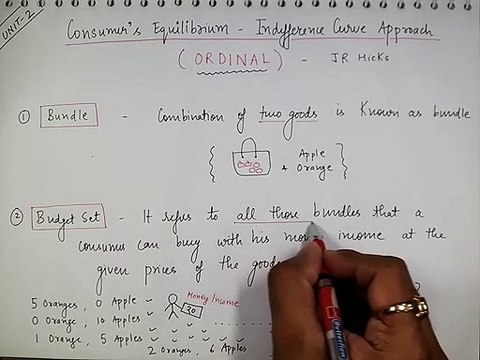 UNIT-2
Consumer's Equilibrium - Indifference Curve Approach
(ORDINAL) - JR Hicks
① Bundle - Combination of two goods is known as bundle
Apple
+ Orange
② Budget Set - It refers to all those bundles that a
consumer can buy with his income at the
given prices of the goods
5 Oranges, 0 Apple
Money Income
20
0 Orange, 10 Apples
1 Orange, 5 Apples
2 Oranges, 6 Apples